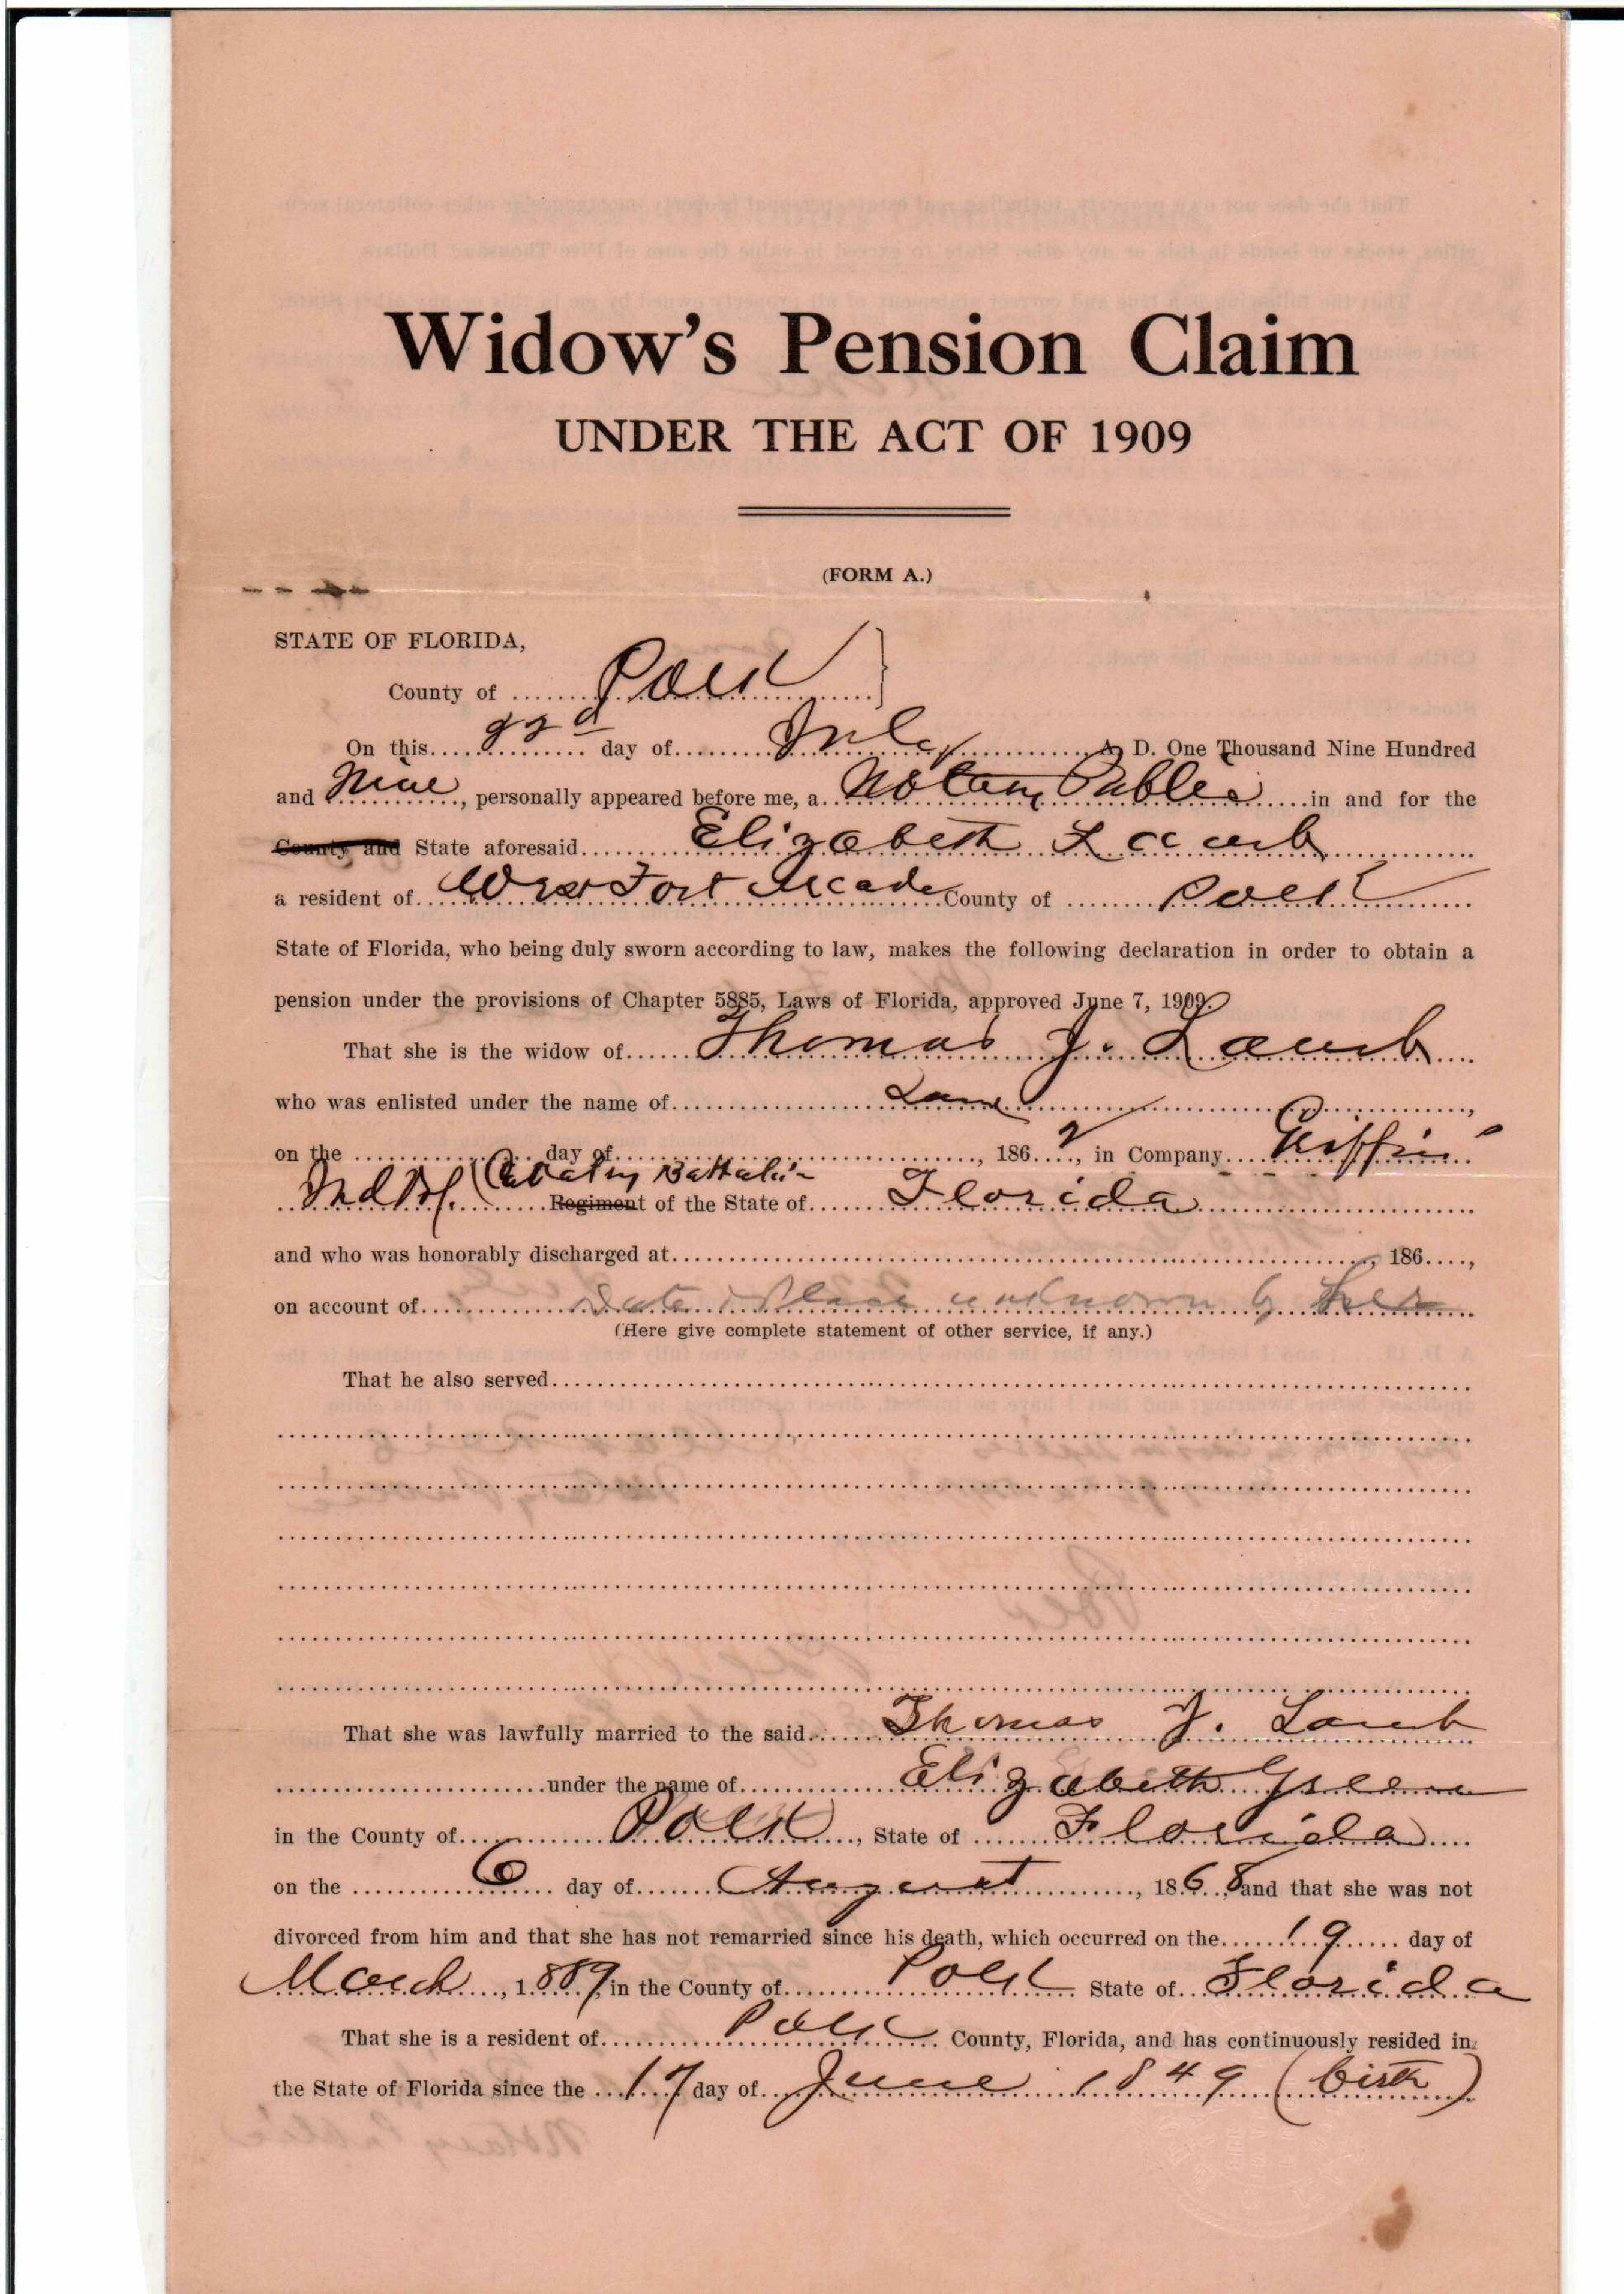 Widow's Pension Claim
UNDER THE ACT OF 1909
(FORM A.)
STATE OF FLORIDA,
County of Polk
On this 22d day of July A. D. One Thousand Nine Hundred
and Nine, personally appeared before me, a Notary Public in and for the
County and State aforesaid Elizabeth Lamb
a resident of Near Fort Meade County of Polk
State of Florida, who being duly sworn according to law, makes the following declaration in order to obtain a
pension under the provisions of Chapter 5885, Laws of Florida, approved June 7, 1909.
That she is the widow of Thomas J. Lamb
who was enlisted under the name of Same,
on the day of, 1862, in Company Griffin's
Cavalry Battalion
Regiment of the State of Florida
and who was honorably discharged at, 186,
on account of Date & Place unknown by her
(Here give complete statement of other service, if any.)
That he also served
That she was lawfully married to the said Thomas J. Lamb
under the name of Elizabeth Green
in the County of Polk, State of Florida
on the 6 day of August, 1868, and that she was not
divorced from him and that she has not remarried since his death, which occurred on the 19 day of
March, 1889, in the County of Polk State of Florida
That she is a resident of Polk County, Florida, and has continuously resided in
the State of Florida since the 17 day of June 1849 (birth)